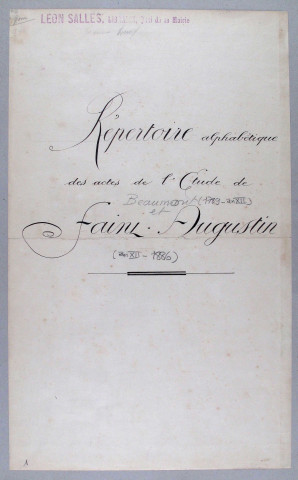 LEON SALLES,
Répertoire alphabétique
des actes de l'Etude de
Beaumont (1783-anXII)
et
Faini. Augustin
(anXII-1886)
A